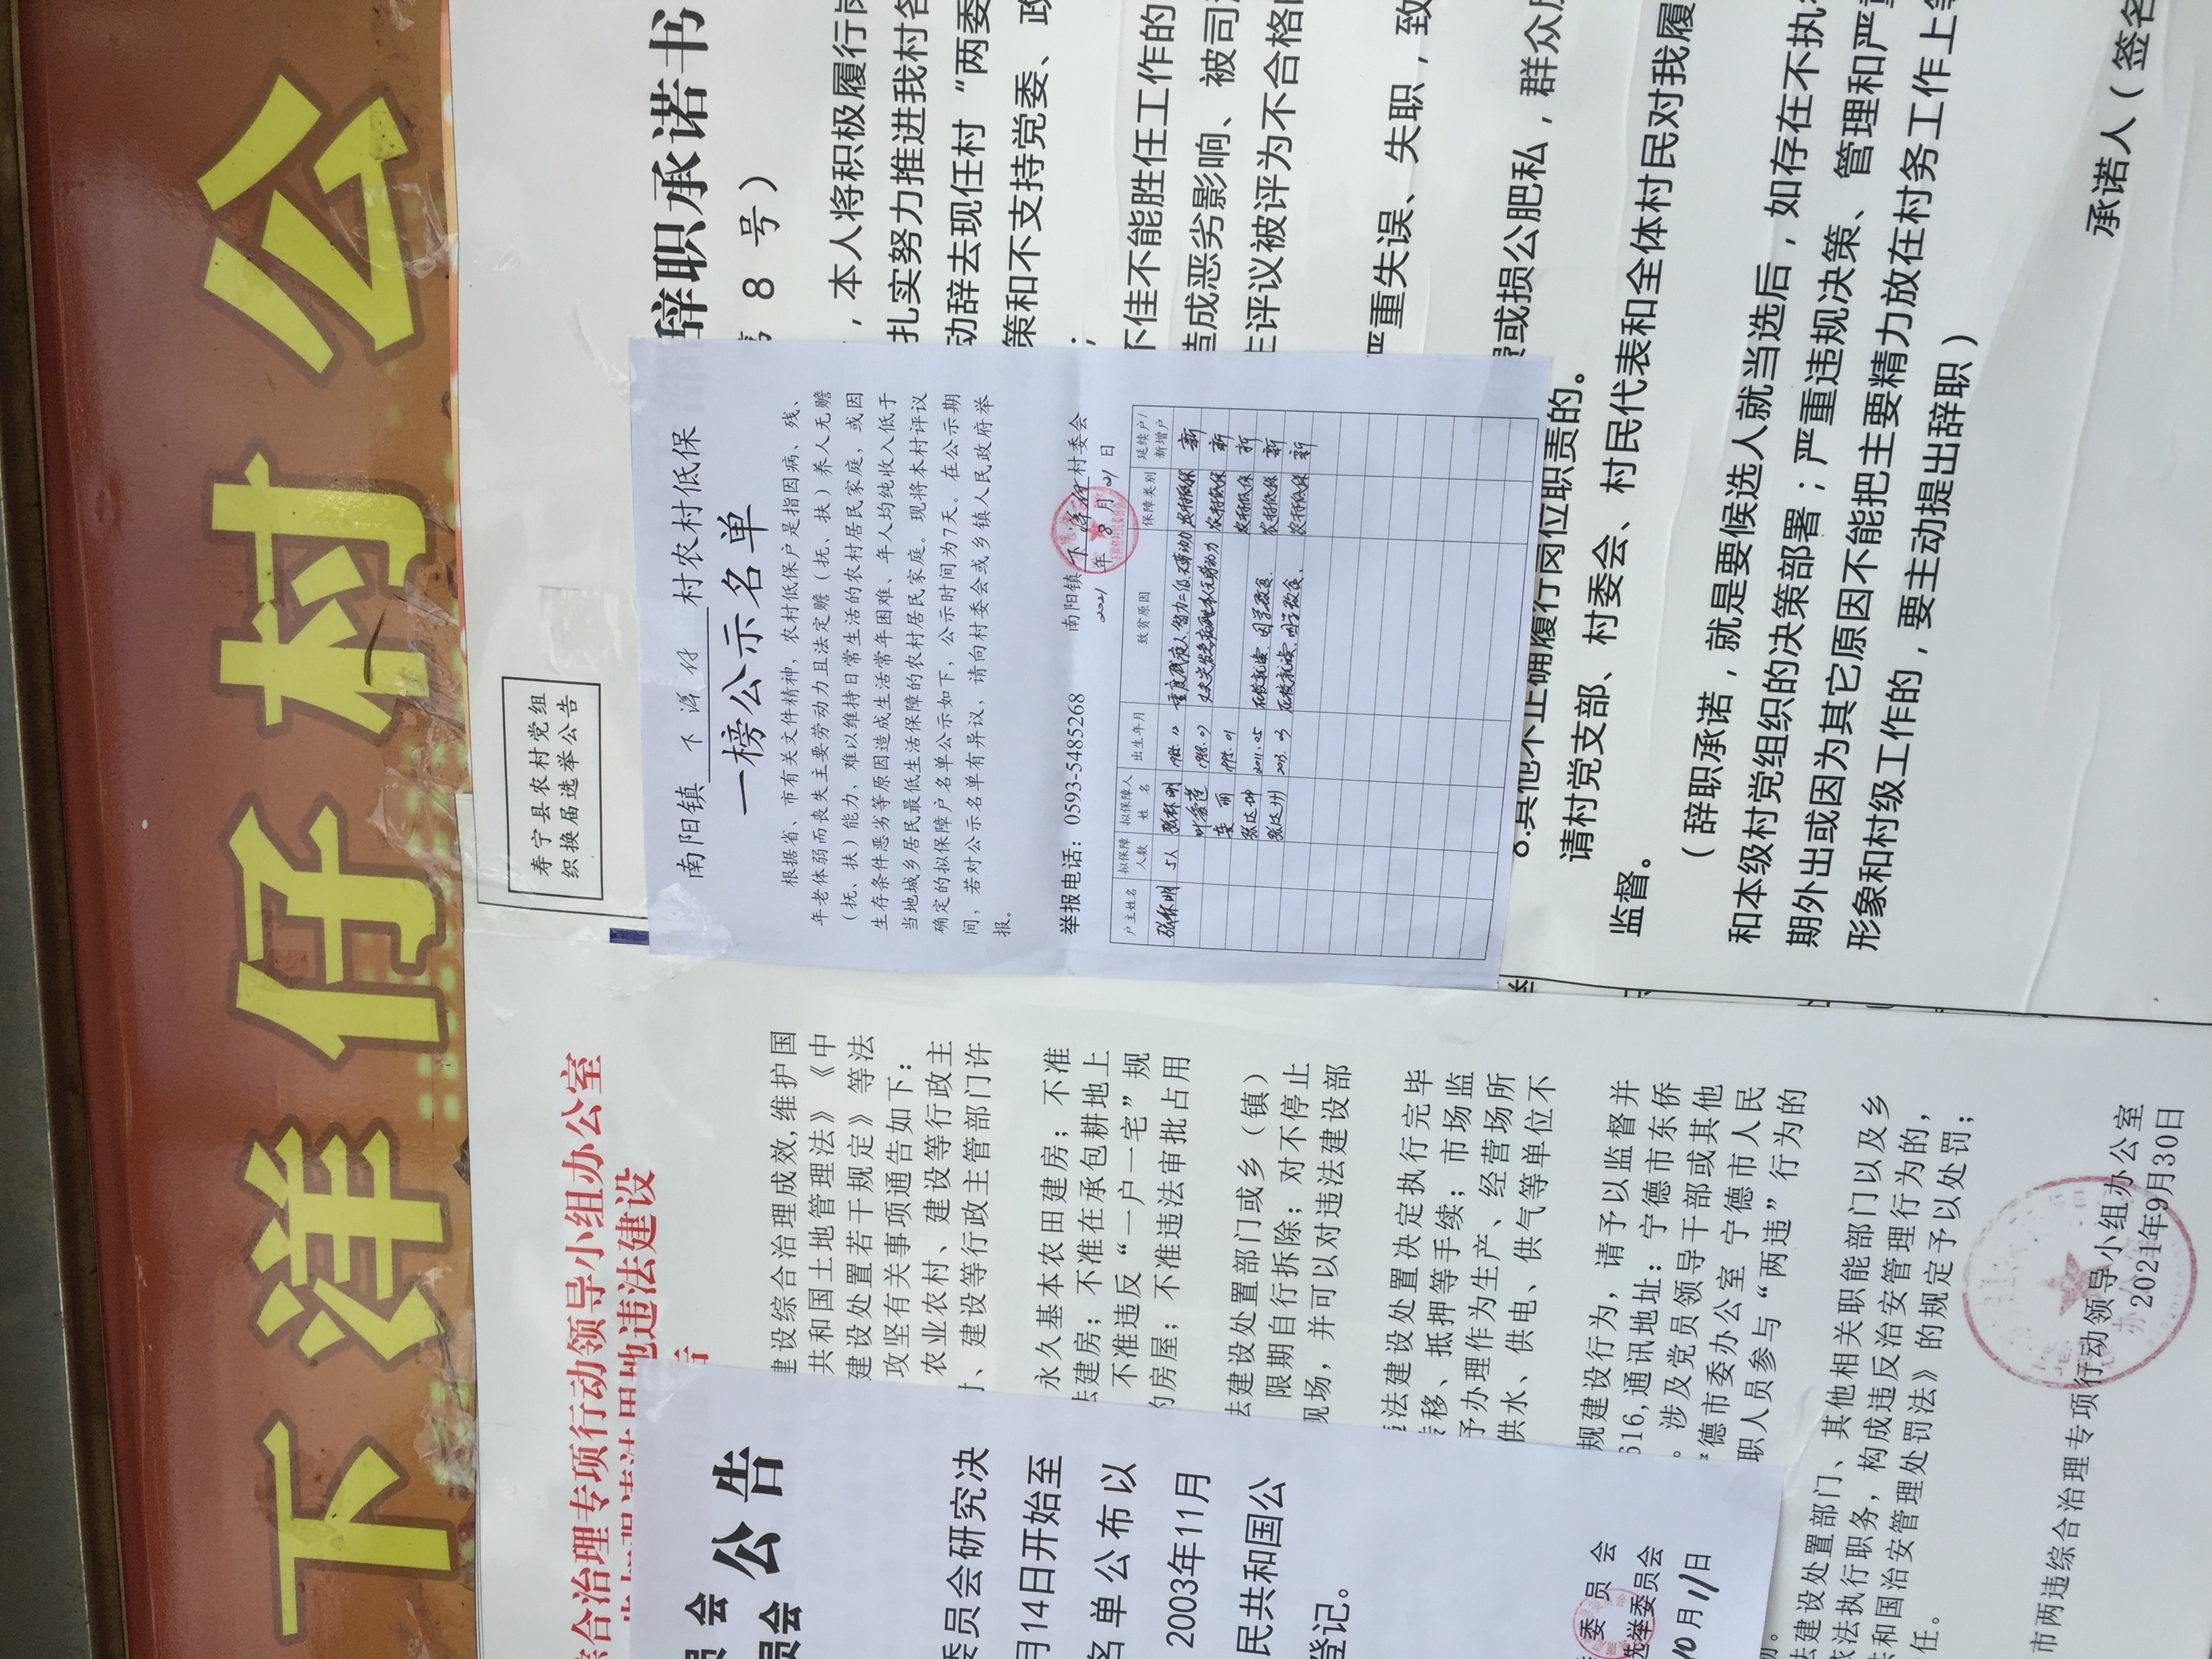 下洋仔村公
寿宁县农村党组
织换届选举公告
辞职承诺书
8 号）
，本人将积极履行
扎实努力推进我村各
动辞去现任村“两委
策和不支持党委、政
；
不佳不能胜任工作的
造成恶劣影响、被司
主评议被评为不合格
严重失误、失职，致
或损公肥私，群众
8.其他不正确履行岗位职责的。
请村党支部、村委会、村民代表和全体村民对我履
监督。
（辞职承诺，就是要候选人就当选后，如存在不执
和本级村党组织的决策部署；严重违规决策、管理和严重
期外出或因为其它原因不能把主要精力放在村务工作上等
形象和村级工作的，要主动提出辞职）
承诺人（签名
南阳镇 下洋仔 村农村低保
一榜公示名单
根据省、市有关文件精神，农村低保户是指因病、残、
年老体弱而丧失主要劳动力且法定赡（抚、扶）养人无赡
（抚、扶）能力，难以维持日常生活的农村居民家庭，或因
生存条件恶劣等原因造成生活常年困难、年人均纯收入低于
当地城乡居民最低生活保障的农村居民家庭。现将本村评议
确定的拟保障户名单公示如下，公示时间为7天。在公示期
间，若对公示名单有异议，请向村委会或乡镇人民政府举
报。
举报电话：0593-5485268 南阳镇 下洋仔 村委会
2021 年 8 月 21 日
户主姓名 拟保障人数 拟保障人姓名 出生年月 致贫原因 保障类别 延续户/新增户
5人 农村低保 新
农村低保 新
丽 农村低保 新
张达坤 2011.05 在校就读，因学致贫． 农村低保 新
张达州 2013.03 在校就读，因学致贫． 农村低保 新
综合治理专项行动领导小组办公室
占地违法建设
建设综合治理成效,维护国
共和国土地管理法》《中
建设处置若干规定》等法
攻坚有关事项通告如下：
农业农村、建设等行政主
、建设等行政主管部门许
永久基本农田建房；不准
法建房；不准在承包耕地上
不准违反“一户一宅”规
的房屋；不准违法审批占用
法建设处置部门或乡（镇）
限期自行拆除；对不停止
现场，并可以对违法建设部
法建设处置决定执行完毕
转移、抵押等手续；市场监
予办理作为生产、经营场所
供水、供电、供气等单位不
规建设行为，请予以监督并
616,通讯地址：宁德市东侨
。涉及党员领导干部或其他
宁德市委办公室 宁德市人民
职人员参与“两违”行为的
法建设处置部门、其他相关职能部门以及乡
依法执行职务，构成违反治安管理行为的，
共和国治安管理处罚法》的规定予以处罚；
任。
市两违综合治理专项行动领导小组办公室
2021年9月30日
员会
员会 公告
委员会研究决
月14日开始至
名单公布以
2003年11月
民共和国公
登记。
委员会
选举委员会
10月11日